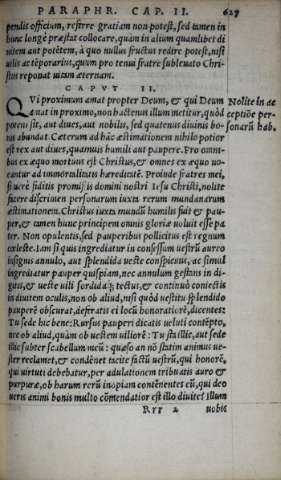 PARAPHR. CAP. II. 627
pendit officium, referre gratiam non potest, sed tamen in
hunc longè præstat collocare, quàm in alium quamlibet di
uitem aut potẽtem, à quo nullus fructus redire potest, nisi
uilis ac tẽporarius, quum pro tenui fratre subleuato Chri-
stus reponat uitam æternam.
CAPVT II.
QVi proximum amat propter Deum, & qui Deum
amat in proximo, non hactenus illum metitur, quòd
potens sit, aut diues, aut nobilis, sed quatenus diuinis bo-
nis abundat. Cæterum ad hãc æstimationem nihilo potior
est rex aut diues, quamuis humili aut paupere. Pro omni-
bus ex æquo mortuus est Christus, & omnes ex æquo uo-
cantur ad immortalitatis hæreditatẽ. Proinde fratres mei,
si uerè fiditis promissis domini nostri Iesu Christi, nolite
facere discrimen personarum iuxta rerum mundanarum
æstimationem. Christus iuxta mundũ humilis fuit & pau-
per, & tamen hunc principem omnis gloriæ uoluit esse pa
ter. Non opulentis, sed pauperibus pollicitus est regnum
cœleste. Iam si quis ingrediatur in consessum uestrũ aureo
insignis annulo, aut splendida ueste conspicuus, ac simul
ingrediatur pauper quispiam, nec annulum gestans in di-
gitis, & ueste uili sordidaq; tectus, & continuò coniectis
in diuitem oculis, non ob aliud, nisi quòd uestitu splendido
pauperẽ obscurat, deferatis ei locũ honoratiorẽ, dicentes:
Tu sede hic bene: Rursus pauperi dicatis ueluti contẽpto,
nec ob aliud, quàm ob uestem uiliorẽ: Tu sta illic, aut sede
illic subter scabellum meũ: quæso an nõ statim animus ue-
ster reclamet, & condẽnet tacite factũ uestrũ, qui honorẽ,
qui uirtuti debebatur, per adulationem tribuatis auro &
purpuræ, ob harum rerũ inopiam contẽnentes eũ, qui deo
ueris animi bonis multo cõmendatior est illo diuite? Illum
Rrr 2 uobis
Nolite in ac
ceptiõe per-
sonarũ hab.